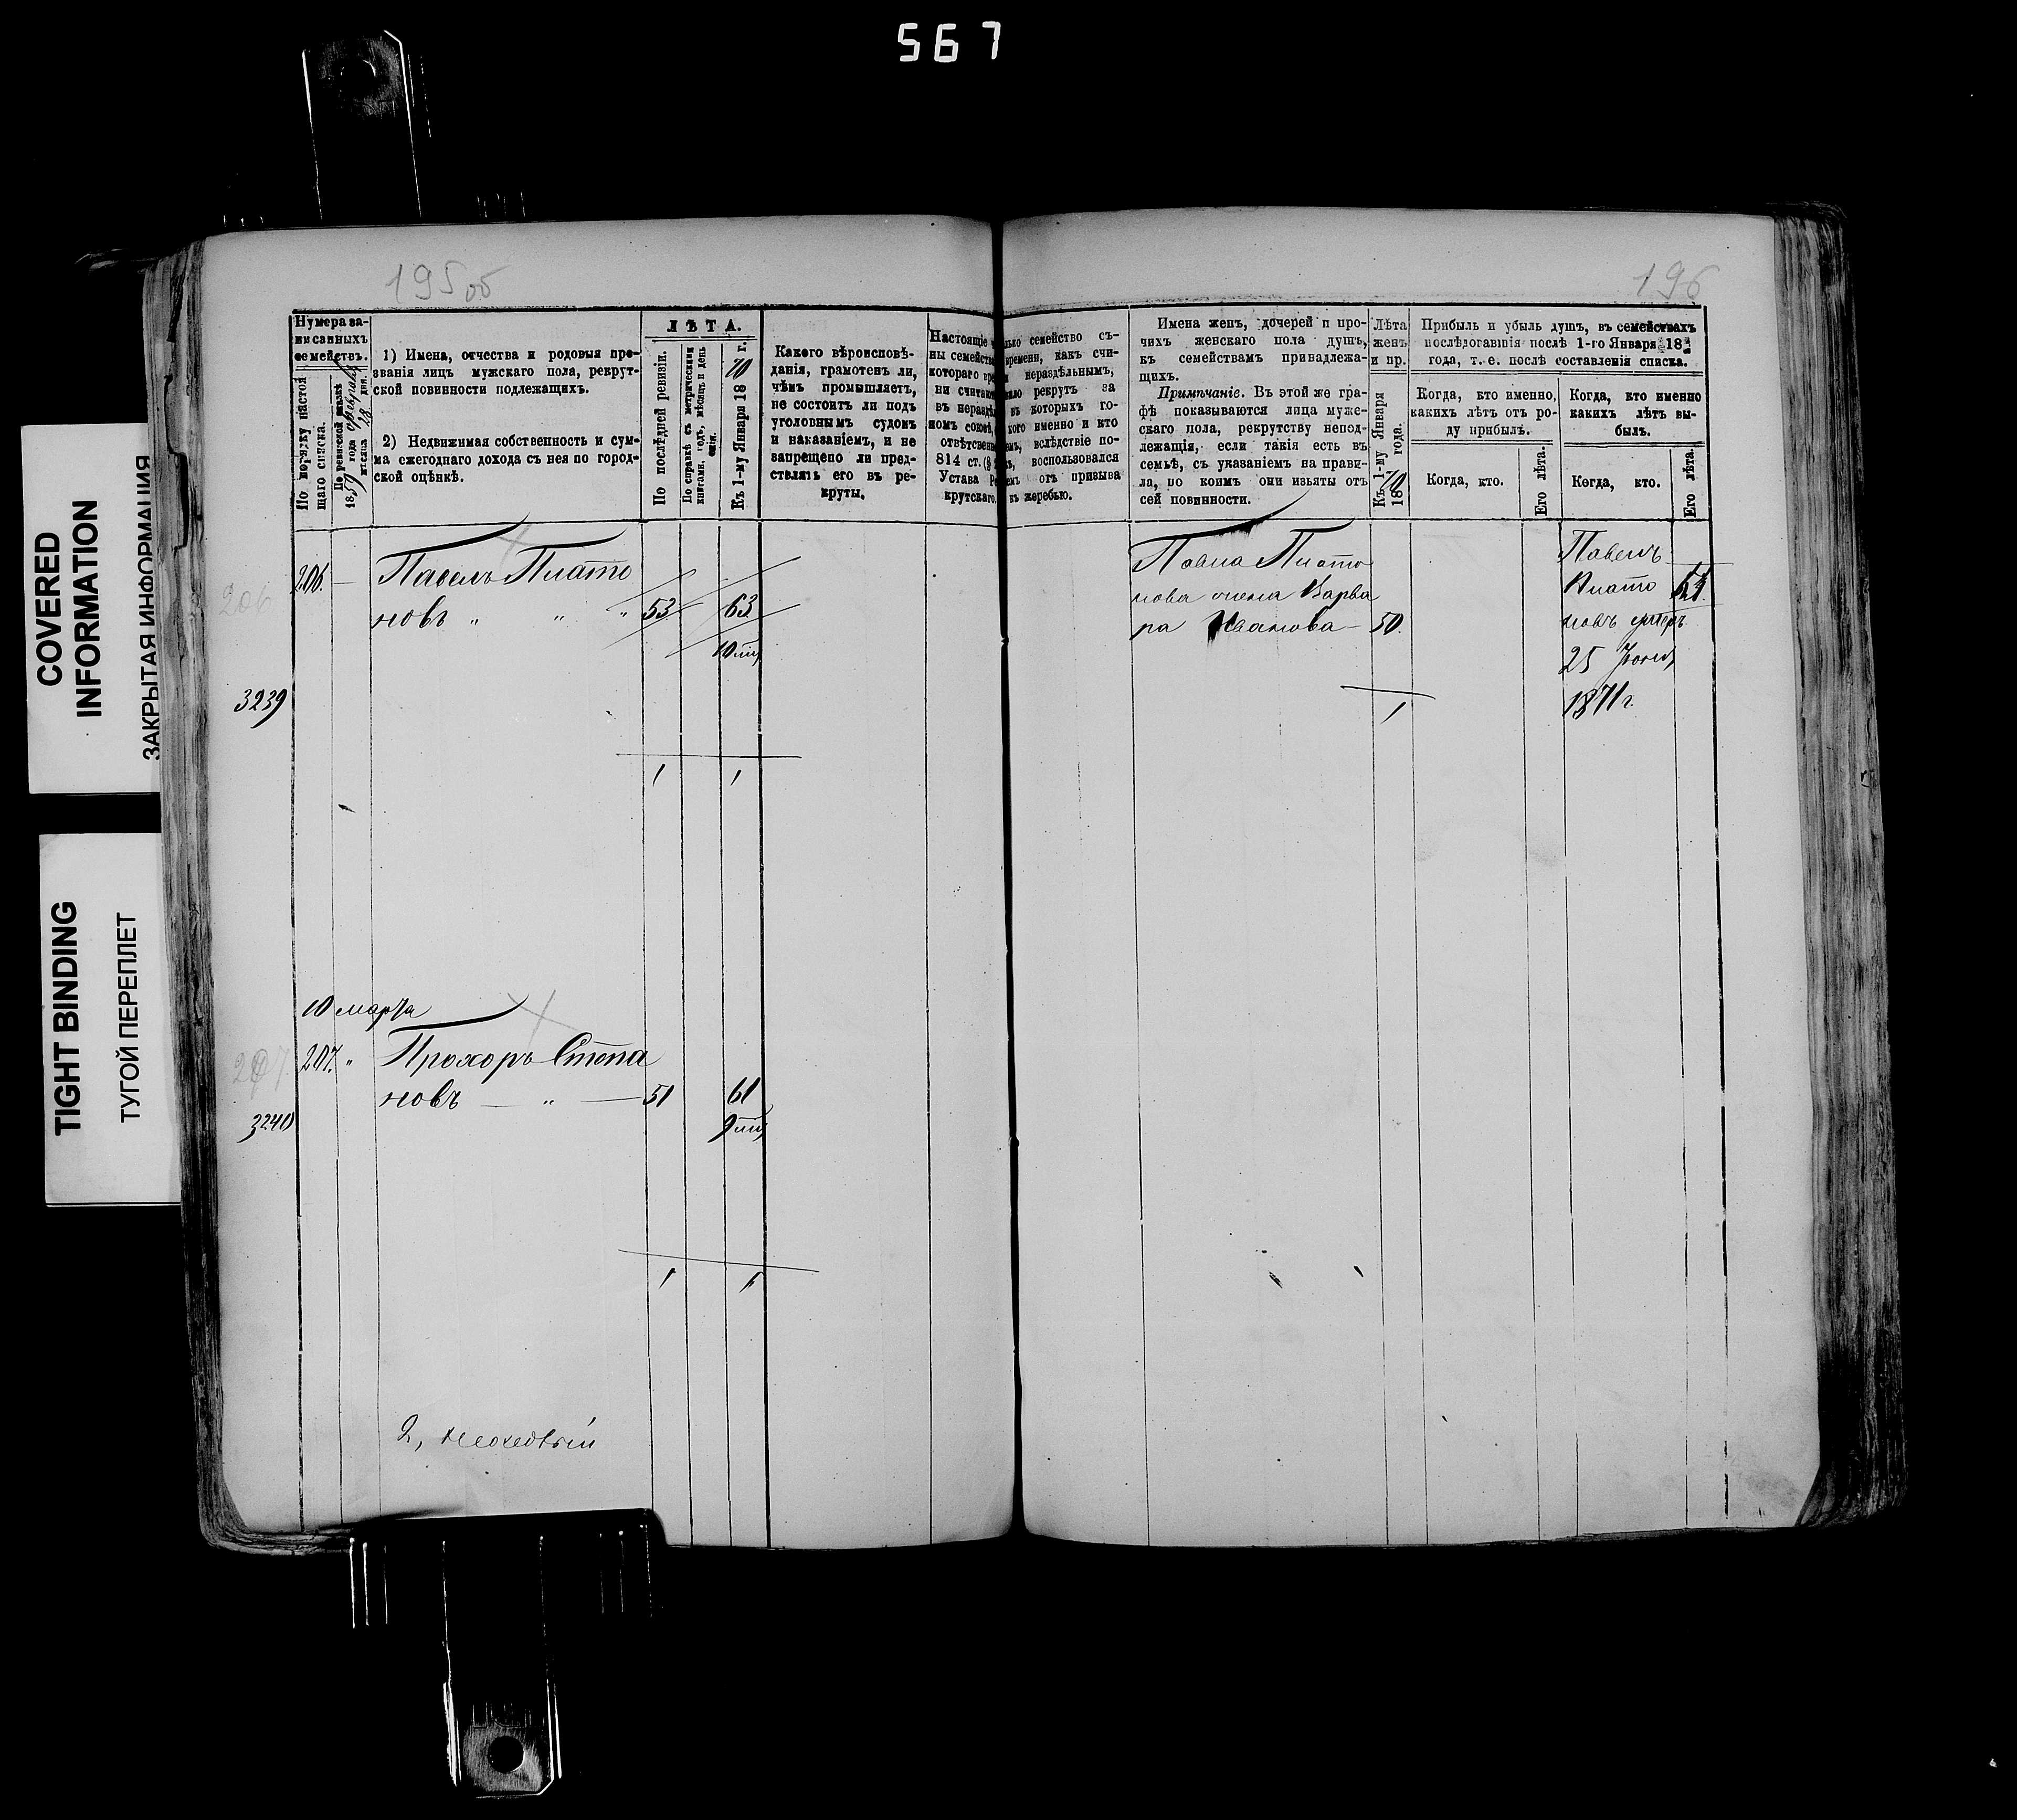 567
COVERED
INFORMATION
ЗАКРЫТАЯ ИНФОРМАЦИЯ
TIGHT BINDING
ТУГОЙ ПЕРЕПЛЕТ
195 об
196
Нумера за-
писанныхъ
семействъ.
По порядку настоя
щаго списка.
По ревизской сказкѣ
1859 года февраля
мѣсяца 28 дня.
1) Имена, отчества и родовыя про-
званія лицъ мужскаго пола, рекрут-
ской повинности подлежащихъ.
2) Недвижимая собственность и сум-
ма ежегоднаго дохода съ нея по город-
ской оцѣнкѣ.
ЛѢТА.
По послѣдней ревизіи.
По справкѣ съ метрическими
книгами, годъ, мѣсяцъ и день
Къ 1-му Января 1870 г.
Какого вѣроисповѣ-
данія, грамотенъ ли,
чѣмъ промышляетъ,
не состоитъ ли подъ
уголовнымъ судомъ
и наказаніемъ, и не
запрещено ли пред-
ставлять его въ ре-
круты.
Настоящіе
ны семейства
котораго вре
ни считают
въ неразд
номъ союзѣ,
отвѣтствен
814 ст. (§
Устава Ре
крутскаго.
лько семейство съ-
времени, какъ счи-
нераздѣльнымъ,
рекрутъ за
въ которыхъ го-
кого именно и кто
вслѣдствіе по-
воспользовался
отъ призыва
къ жеребью.
Имена женъ, дочерей и про-
чихъ женскаго пола душъ,
къ семействамъ принадлежа-
щихъ.
Примѣчаніе. Въ этой же гра-
фѣ показываются лица муже-
скаго пола, рекрутству непод-
лежащія, если такія есть въ
семьѣ, съ указаніемъ на прави-
ла, по коимъ они изъяты отъ
сей повинности.
Лѣта
женъ
и пр.
Къ 1-му Января
1870 года.
Прибыль и убыль душъ, въ семействахъ
послѣдовавшія послѣ 1-го Января 187
года, т. е. послѣ составленія списка.
Когда, кто именно,
какихъ лѣтъ отъ ро-
ду прибылъ.
Когда, кто именно
какихъ лѣтъ вы-
былъ.
Когда, кто.
Его лѣта.
Когда, кто.
Его лѣта.
206
206. — Павелъ Плато
новъ " " " 53 63
10 мѣс
3239
1 1
Павла Плато
нова жена Варва
ра Иванова — 50.
1
Павелъ
Плато
новъ умеръ
25 Іюня
1871 г.
10 марта
207.
207. " Прохоръ Степа
новъ — " — 51 61
9 мѣс
3240
1 1
2,